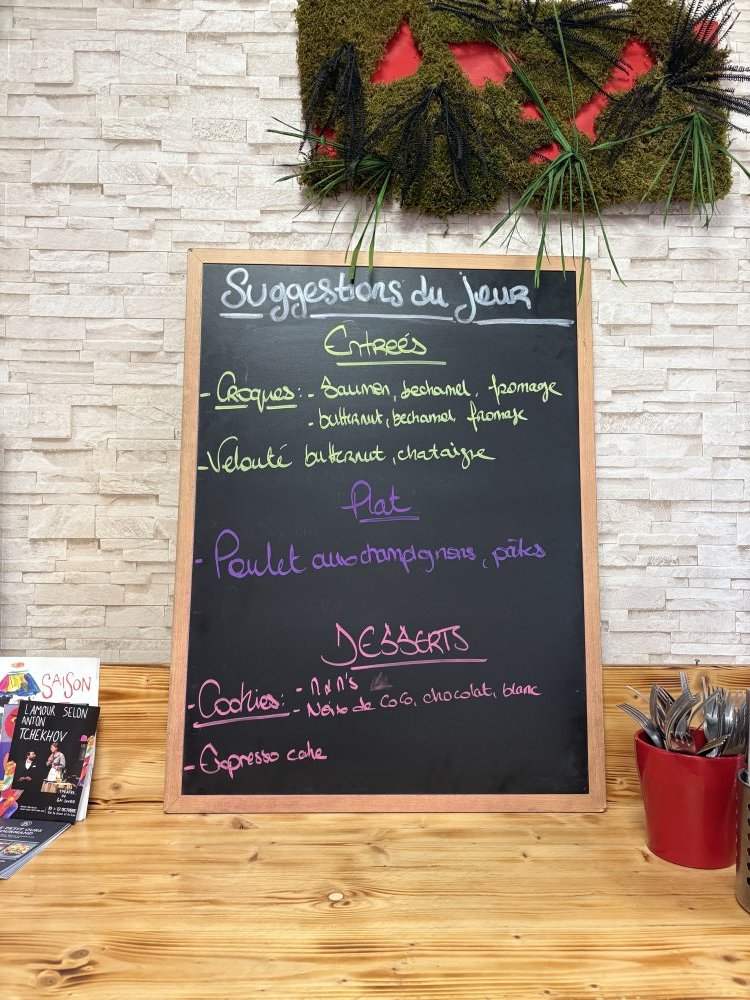 Suggestions du jour
Entreés
- Croques: - Saumon, bechamel, fromage
- butternut, bechamel, fromage
- Velouté butternut, chataigne
Plat
- Poulet aux champignons, pâtes
DESSERTS
- Cookies: - M&M's
- Noix de Coco, chocolat, blanc
- Espresso cake
SAISON
L'AMOUR SELON
ANTON
TCHEKHOV